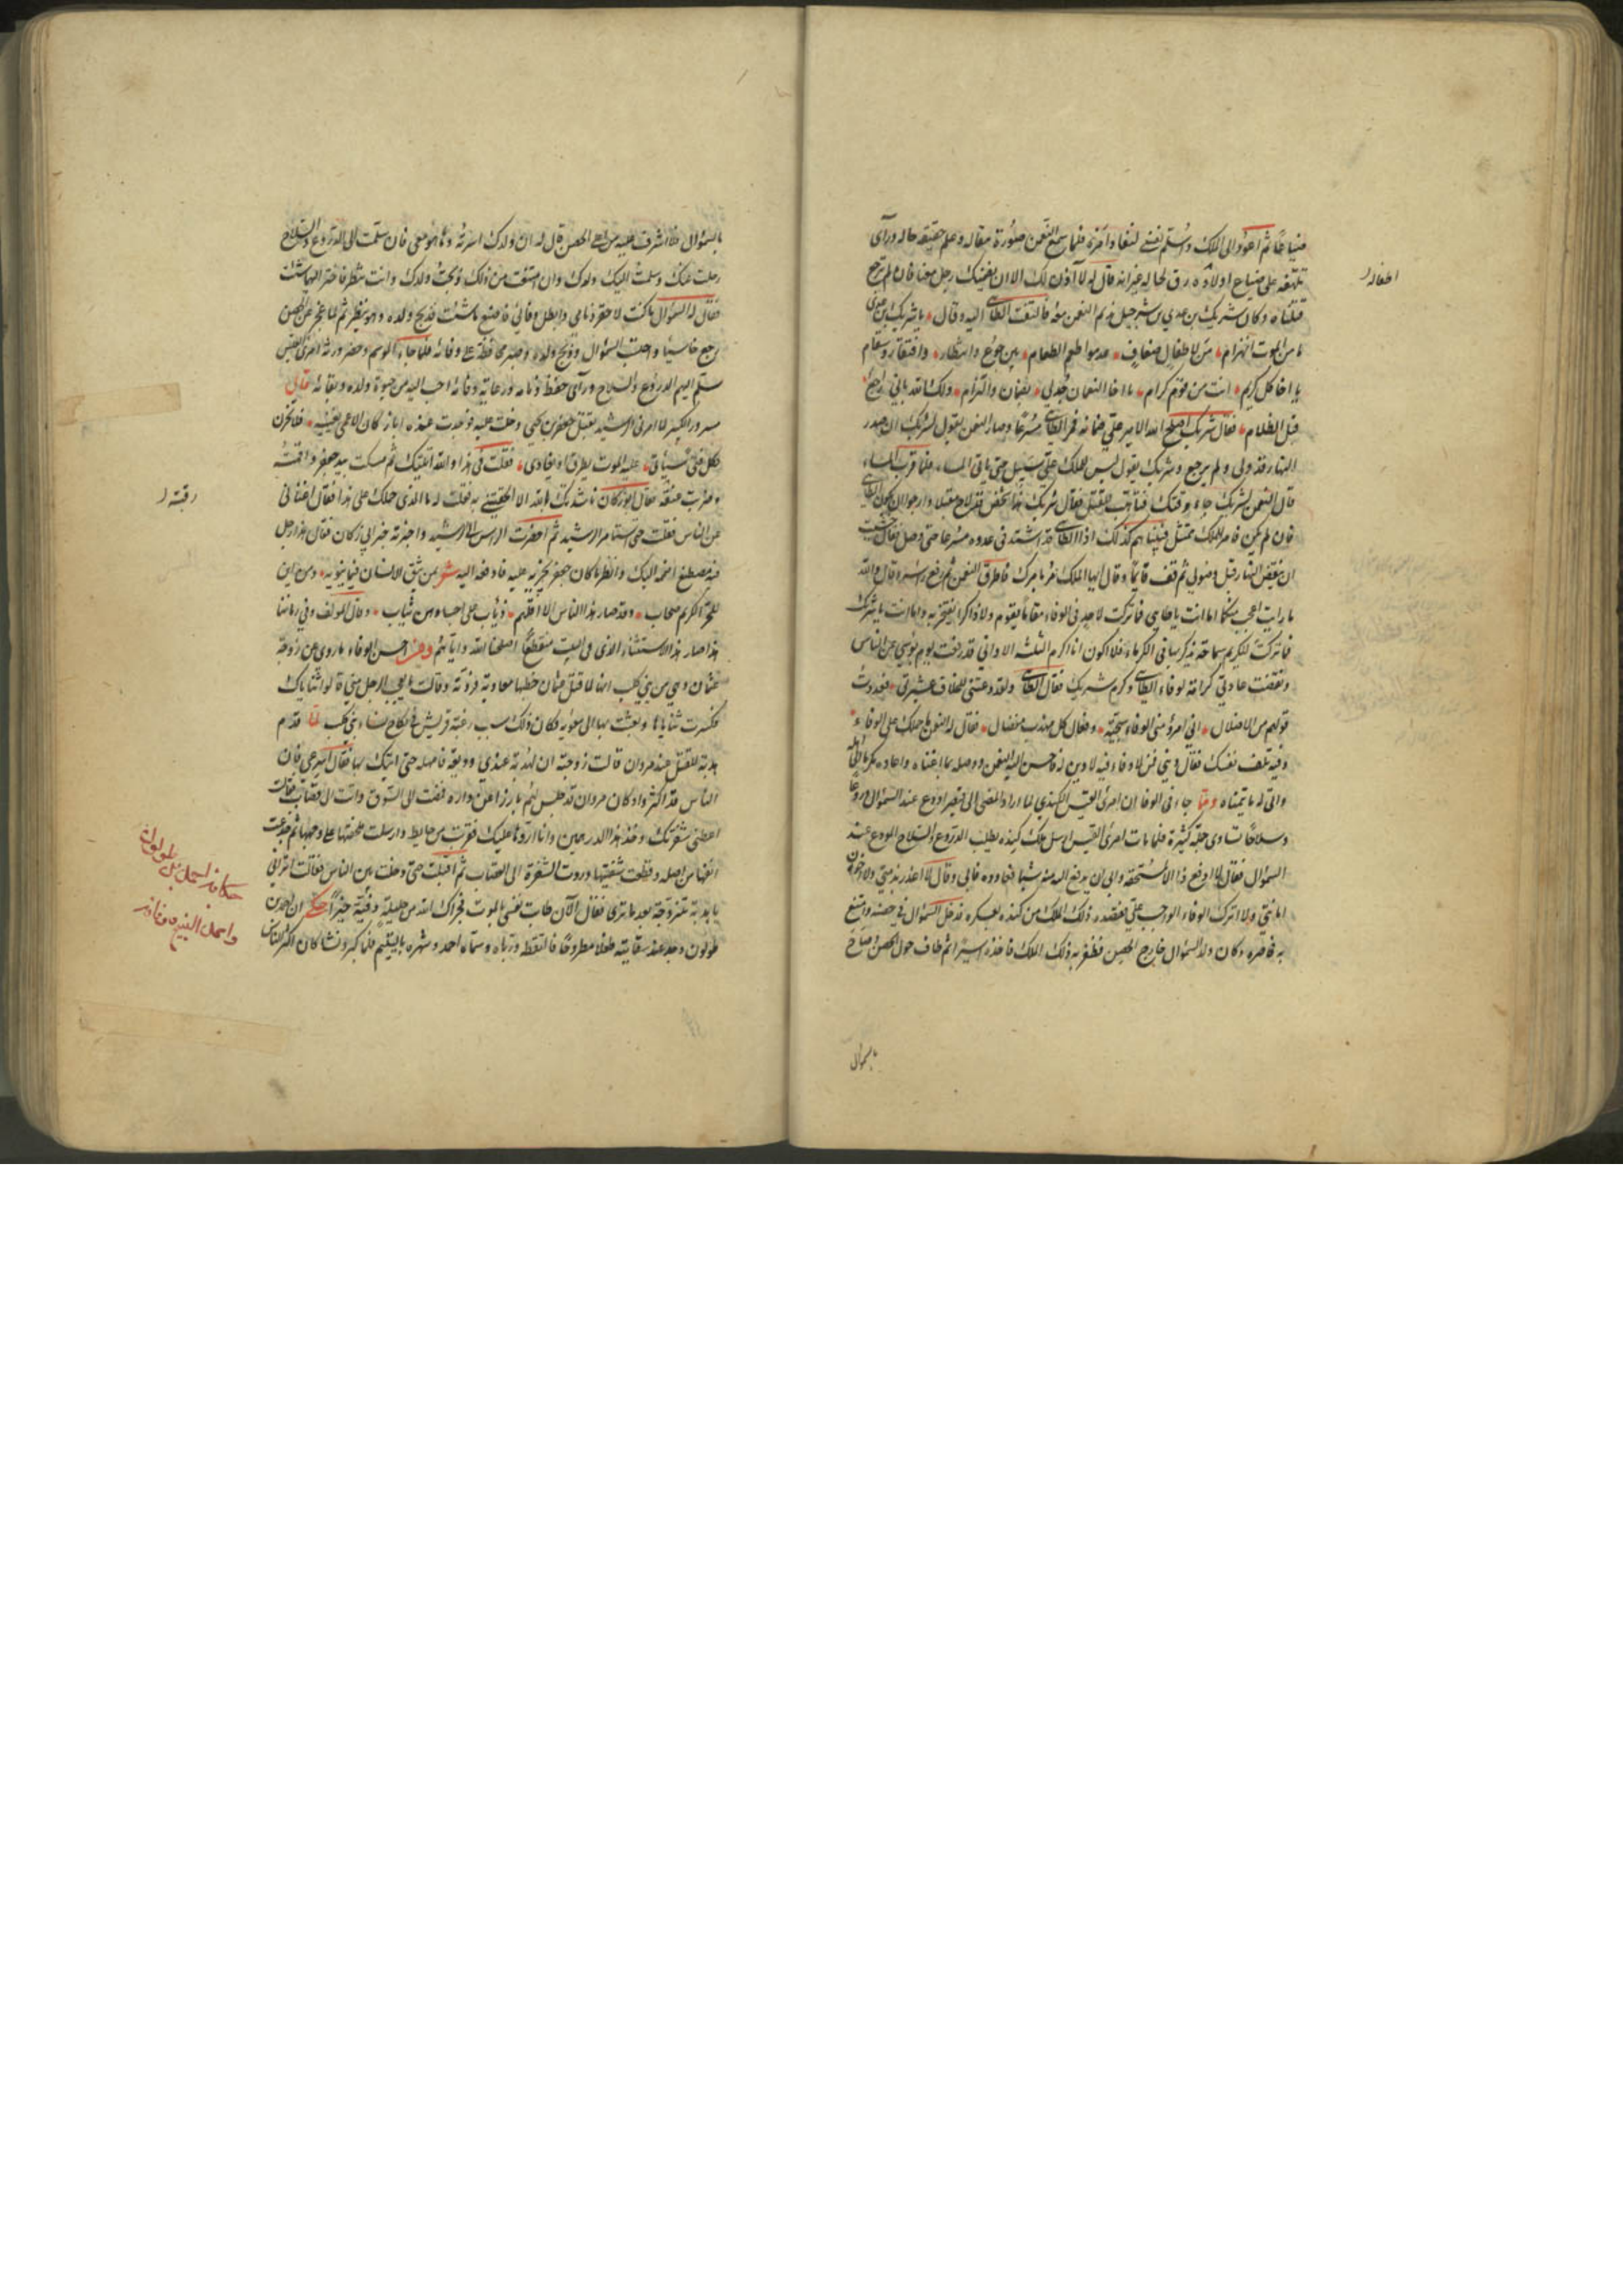 ضياعًا ثم اعود الى الملك واستلم نفسى لنفاذ امره فلما سمع النعمن صورة مقاله وعلم حقيقة حاله ورأى
تلهفه على ضياع اولاده رق لحاله غير انه قال له لا آذن لك الا ان يضمنك رجل معنا فان لم ترجع
اطفاله
قتلناه وكان شريك بن عدي بن شرحبيل نديم النعمن معه فالتفت الطائى اليه وقال يا شريك بن عدى
ما من الموت انهزام من لاطفال ضعاف عدموا طعم الطعام بين جوع وانتظار وافتقار وسقام
يا اخا كل كريم انت من قوم كرام يا اخا النعمان جد لي بضمان والتزام ولك الله باني راجع
قبل الظلام فقال شريك اصلح الله الامير علي ضمانه فمر الطائى مسرعًا وصار النعمن يقول لشريك ان صدر
النهار قد ولى ولم يرجع وشريك يقول ليس للملك علي سبيل حتى ياتى المساء فلما قرب المساء
قال النعمن لشريك جاء وقتك فتأهب للقتل فقال شريك هذا شخص قد لاح مقبلا وارجو ان يكون الطائى
فان لم يكن فامر الملك ممتثل فبيناهم كذلك اذا الطائى قد اشتد في عدوه مسرعا حتى وصل فقال خشيت
ان ينقضى النهار قبل وصولي ثم وقف قائمًا وقال ايها الملك مر بامرك فاطرق النعمن ثم رفع راسه وقال والله
ما رايت اعجب منكما اما انت يا طائى فما تركت لاحد في الوفاء مقاما يقوم ولا ذاكرا يفتخر به واما انت يا شريك
فما تركت لكريم سماحة يذكر بها في الكرماء فلا اكون انا اكرم الثلثه الا واني قد رفعت يوم بؤسي عن الناس
ونقضت عادتي كرامة لوفاء الطائى وكرم شريك فقال الطائى ولقد دعتني للخلاف عشيرتي فعددت
قولهم من الاضلال اني امرؤ مني الوفاء سجية وفعال كل مهذب مفضال فقال له النعمن ما حملك على الوفاء
وفيه تلف نفسك فقال ديني فمن لا وفاء فيه لا دين له فاحسن اليه النعمن ووصله بما اغناه واعاده مكرما الى اهله
واتى له ما يتمناه ومما جاء فى الوفا ان امرئ القيس الكندي لما اراد المضى الى قيصر اودع عند السموال دروعا
وسلاحًا تساوى جملة كثيرة فلما مات امرئ القيس ارسل ملك كنده يطلب الدروع والسلاح المودع عند
السموال فقال لا ادفع ذا الا لمستحقه وابى ان يدفع اليه منه شيا فعاوده فابى وقال لا اغدر بذمتي ولا اخون
امانتي ولا اترك الوفاء الواجب علي فقصده ذلك الملك من كنده بعسكره فدخل السموال في حصنه وامتنع
به فحاصره وكان ولد السموال خارج الحصن فظفر به ذلك الملك فاخذه اسيرا ثم طاف حول الحصن وصاح
بالسموال
بالسموال فلما اشرف عليه من اعلى الحصن قال له ان ولدك اسرته وها هو معى فان سلمت الى الدروع والسلاح
رحلت عنك وسلمت اليك ولدك وان امتنعت من ذلك ذبحت ولدك وانت تنظر فاختر ايهما شئت
فقال له السموال ما كنت لاحقر ذمامى وابطل وفائى فاصنع ما شئت فذبح ولده وهو ينظر ثم لما عجز عن الحصن
رجع خائبا واحتسب السموال ذبح ولده وصبر محافظة على وفائه فلما جاء الموسم وحضر ورثة امرئ القيس
سلم اليهم الدروع والسلاح ورأى حفظ ذمامه ورعاية وفائه احب اليه من حيوة ولده وبقائه قال
مسرور الكبير لما امرنى الرشيد بقتل جعفر بن يحيى دخلت عليه فوجدت عنده ابا زكان الاعمى يغنيه فلا تحزن
فكل فتى سيأتى عليه الموت يطرق او يغادى فقلت فى هذا والله اتيتك ثم مسكت بيد جعفر واقمته
وضربت عنقه فقال ابو زكان ناشدتك الله الا الحقتنى به فقلت له ما الذى حملك على هذا فقال اغنانى
رقبته
عن الناس فقلت حتى استامر الرشيد ثم احضرت الراس الى الرشيد واخبرته خبر ابى زكان فقال هذا رجل
فيه مصطنع اضمه اليك وانظر ما كان جعفر يجريه عليه فادفعه اليه شعر بمن يثق الانسان فيما ينوبه ومن اين
للحر الكريم صحاب وقد صار هذا الناس الا اقلهم ذئاب على اجسادهن ثياب وقال المولف وفي زماننا
هذا صار هذا الاستثناء الذى فى البيت منقطعًا اصلحنا الله واياهم ومن احسن الوفاء ما روى عن زوجة
عثمان وهي من بني كلب انها لما قتل عثمان خطبها معاوية فردته وقالت ما يعجب الرجل منى قالوا ثناياك
فكسرت ثناياها وبعثت بها الى معويه فكان ذلك سبب رغبة قريش فى نكاح نساء بنى كلب لما قدم
هدبة للقتل عند مروان قالت زوجته ان لهدبة عندي وديعة فامهله حتى اتيتك بها فقال اسرعى فان
الناس قد اكثروا وكان مروان قد جلس لهم بارزا عن داره فمضت الى السوق واتت الى قصاب فقالت
اعطنى شفرتك وخذ هذا الدرهمين وانا اردها عليك فقربت من حايط وارسلت ملحفتها على وجهها ثم جدعت
انفها من اصله وقطعت شفتيها وردت الشفرة الى القصاب ثم اقبلت حتى دخلت بين الناس فقالت اترانى
يا هدبة متزوجة بعد ما ترى فقال الآن طابت نفسى بالموت فجزاك الله من حليلة وفية خيرًا حكى ان احمد بن
طولون وجد عند سقايته طفلا مطروحًا فالتقطه ورباه وسماه احمد وشهره باليتيم فلما كبر ونشا كان اكثر الناس
حكاية احمد بن طولون
واحمد اليتيم